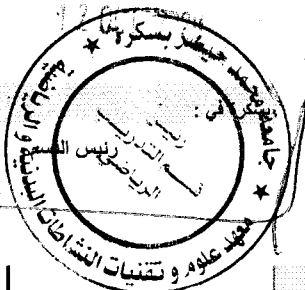 جامعة محمد خيضر بسكرة
معهد علوم و تقنيات النشاطات البدنية والرياضية
في :
رئيس القسم
رئيس
قسم التدريب
الرياضي